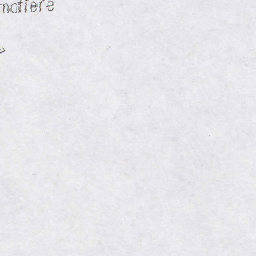 matière